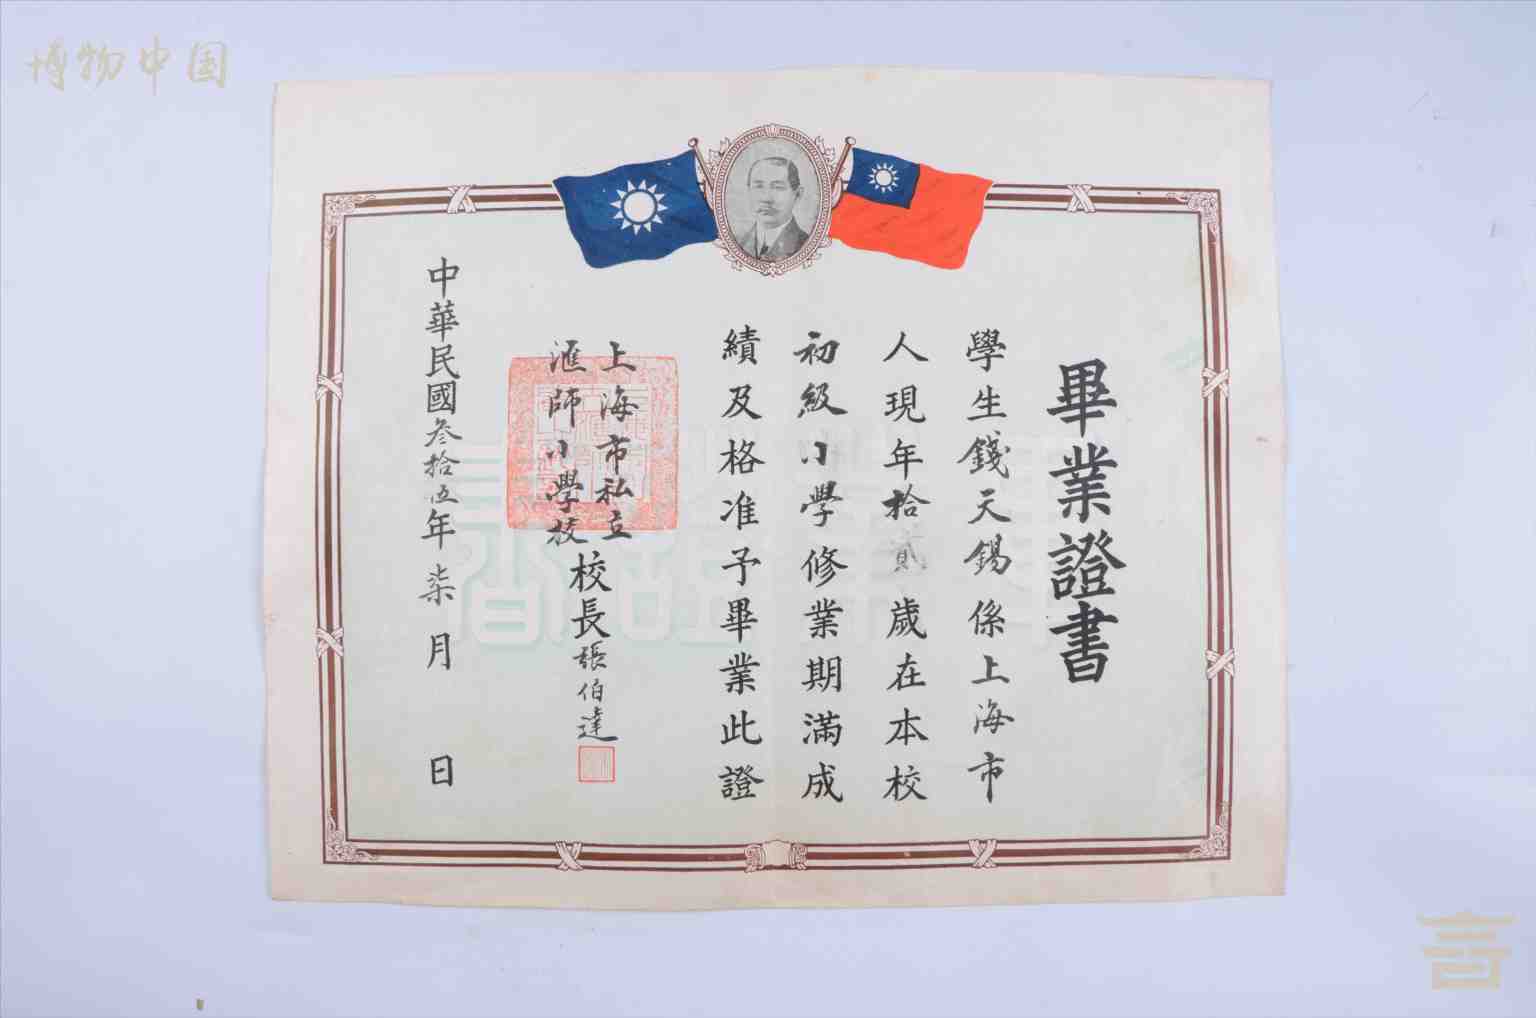 博物中国
畢業證書
學生錢天錫係上海市
人現年拾貳歲在本校
初級小學修業期滿成
績及格准予畢業此證
上海市私立
滙師小學校
校長張伯達
中華民國叁拾五年柒月 日